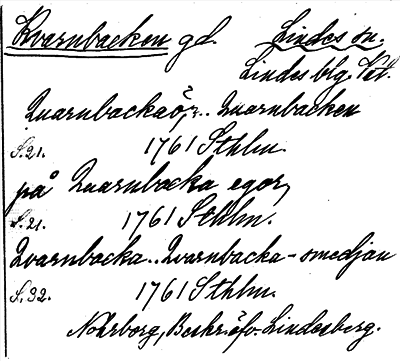 Kvarnbacken gd. Lindes sn.
Lindes blg. Vst.
Quarnbackaö, .. Quarnbacken
S. 21. 1761 Sthlm.
på Quarnbacka egor,
S. 21. 1761 Sthlm.
Qvarnbacka .. Qvarnbacka-smedjan
S. 92. 1761 Sthlm.
Nohrborg, Beskr. öfv. Lindesberg.